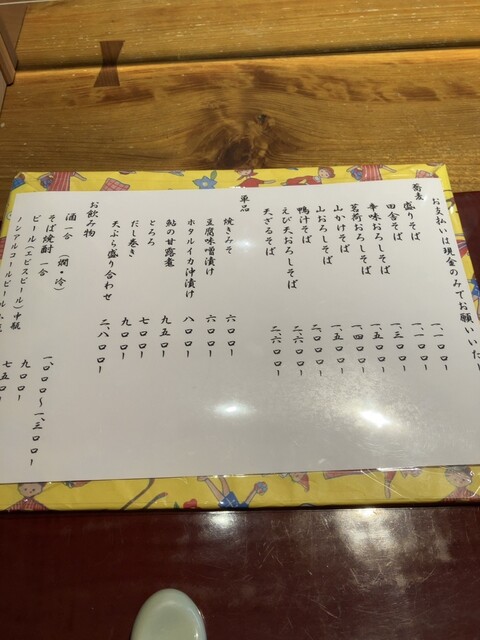 お支払いは現金のみでお願いいた
蕎麦
盛りそば 一、一〇〇ー
田舎そば 一、一〇〇ー
辛味おろしそば 一、三〇〇ー
茗荷おろしそば 一、五〇〇ー
山かけそば 一、四〇〇ー
山おろしそば 一、五〇〇ー
鴨汁そば 二、〇〇〇ー
えび天おろしそば 二、六〇〇ー
天ざるそば 二、六〇〇ー
単品
焼きみそ 六〇〇ー
豆腐味噌漬け 六〇〇ー
ホタルイカ沖漬け 八〇〇ー
鮎の甘露煮 九五〇ー
とろろ 七〇〇ー
だし巻き 九〇〇ー
天ぷら盛り合わせ 二、八〇〇ー
お飲み物
酒一合 (燗・冷) 一、〇〇〇〜一、三〇〇ー
そば焼酎一合 九〇〇ー
ビール(エビスビール)中瓶 七五〇ー
ノンアルコールビール